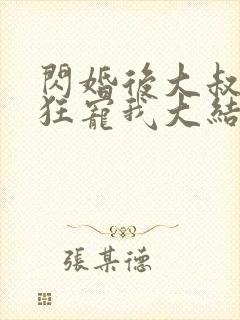 閃婚後大叔
狂寵我大結
張某德